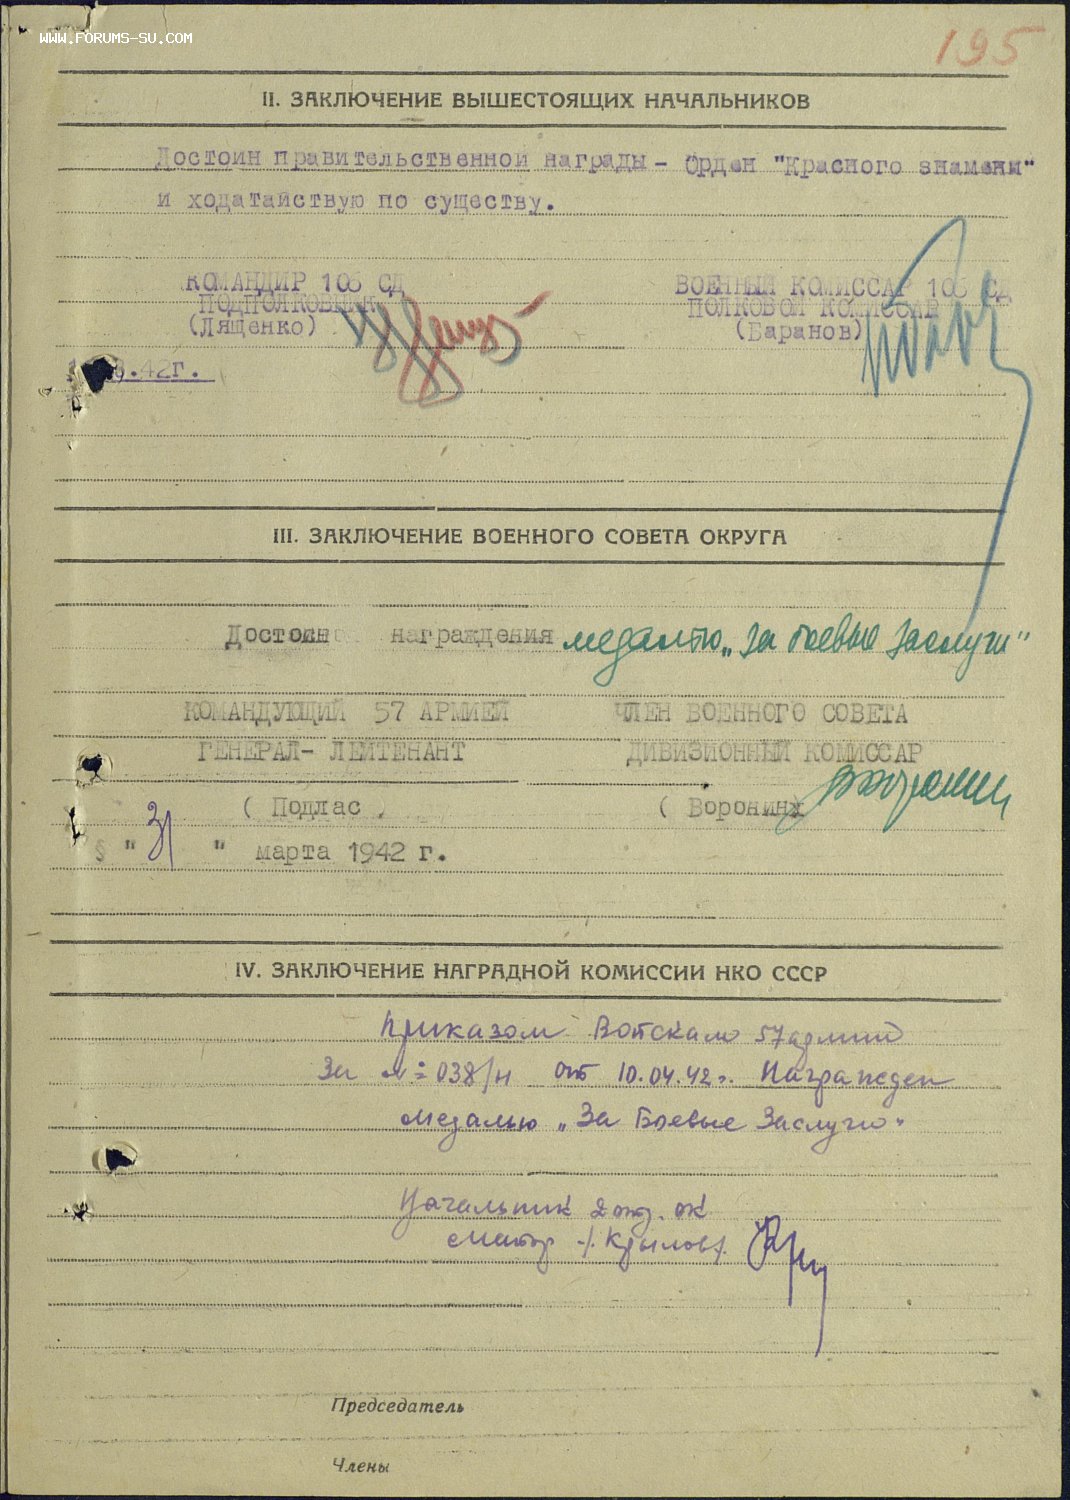 WWW.FORUMS-SU.COM
195
II. ЗАКЛЮЧЕНИЕ ВЫШЕСТОЯЩИХ НАЧАЛЬНИКОВ
Достоин правительственной награды - Орден "Красного знамены"
и ходатайствую по существу.
КОМАНДИР 106 СД ВОЕННЫЙ КОМИССАР 106 СД
ПОДПОЛКОВНИК ПОЛКОВОЙ КОМИССАР
(Лященко) (Баранов)
.42г.
III. ЗАКЛЮЧЕНИЕ ВОЕННОГО СОВЕТА ОКРУГА
Достоин награждения медалью „За боевые заслуги"
КОМАНДУЮЩИЙ 57 АРМИЕЙ ЧЛЕН ВОЕННОГО СОВЕТА
ГЕНЕРАЛ-ЛЕЙТЕНАНТ ДИВИЗИОННЫЙ КОМИССАР
( Подлас ( Воронин)
" 31 " марта 1942 г.
IV. ЗАКЛЮЧЕНИЕ НАГРАДНОЙ КОМИССИИ НКО СССР
Приказом Войскам 57 армии
За № 038/н от 10.04.42г. Награжден
медалью „За Боевые Заслуги"
Начальник 2 отд. ОК
майор /Крылов/
Председатель
Члены